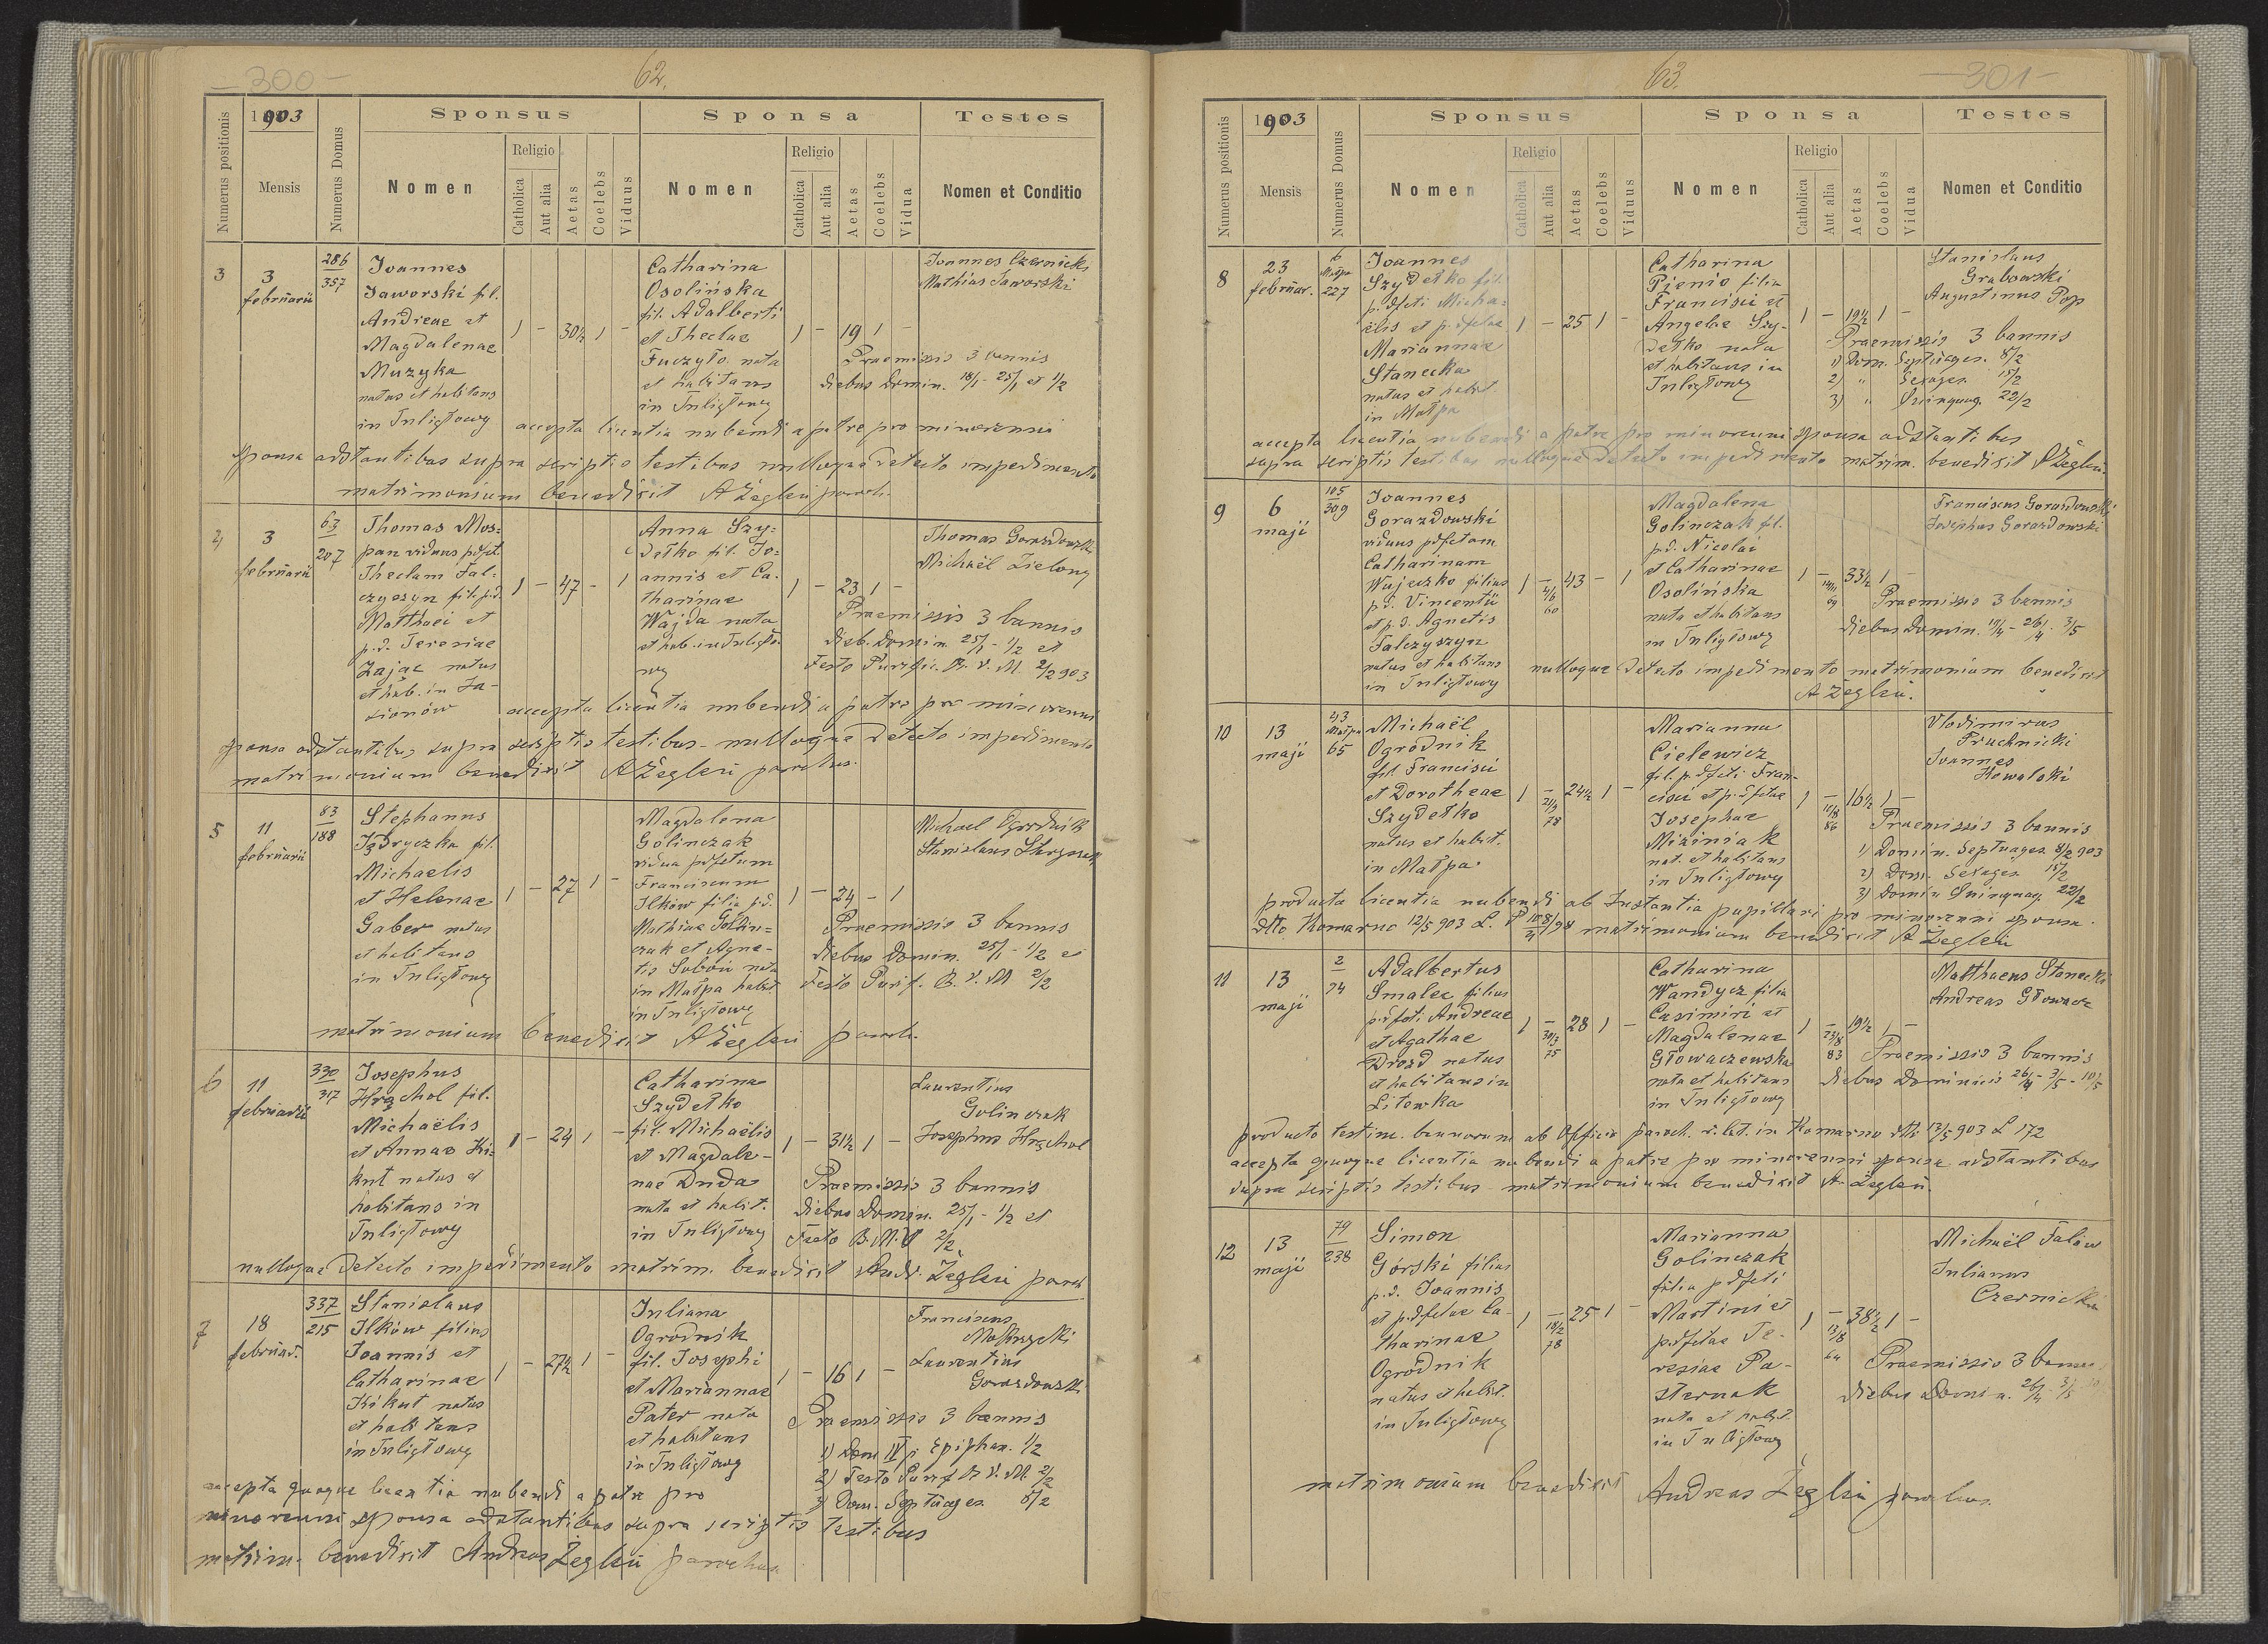 300
62.
1903
Numerus positionis
Mensis
Numerus Domus
Sponsus
Nomen
Religio
Catholica
Aut alia
Aetas
Coelebs
Viduus
Sponsa
Nomen
Religio
Catholica
Aut alia
Aetas
Coelebs
Vidua
Testes
Nomen et Conditio
3
3
februarii
286
357
Joannes
Jaworski fil.
Andreae et
Magdalenae
Muzyka
natus et habitans
in Tuligłowy
1 - 30½ 1 -
Catharina
Osolińska
fil. Adalberti
et Theclae
Fuczyło nata
et habitans
in Tuligłowy
1 - 19 1 -
Joannes Czernicki
Mathias Jaworski
Praemissis 3 bannis
diebus Domin. 18/1 - 25/1 et 1/2
accepta licentia nubendi a patre pro minorenni
sponsa adstantibus supra scriptis testibus nulloque detecto impedimento
matrimonium benedixit AŻegleń paroch.
4
3
februarii
63
207
Thomas Mos-
pan viduus pdfct.
Theclam Fal-
czyszyn fil. p.d.
Matthaei et
p.d. Teresiae
Zając natus
et hab. in Ja-
1 - 47 - 1
Anna Szy-
dełko fil. Jo-
annis et Ca-
tharinae
Wajda nata
et hab. in Tuligło-
wy
1 - 23 1 -
Thomas Gorazdowski
Michaël Zielony
Praemissis 3 bannis
dieb. Domin. 25/1 - 1/2 et
Festo Purific. B. V. M. 2/2 903
accepta licentia nubendi a patre pro minorenni
sponsa adstantibus supra scriptis testibus - nulloque detecto impedimento
matrimonium benedixit AŻegleń parochus.
5
11
februarii
83
188
Stephanus
Jędryczka fil.
Michaelis
et Helenae
Gaber natus
et habitans
in Tuligłowy
1 - 27 1 -
Magdalena
Golinczak
vidua pdfctum
Franciscum
Ilków filia p.d.
Mathiae Golin-
czak et Agne-
tis Soboń nata
in Małpa habit.
in Tuligłowy
1 - 24 - 1
Michael Ogrodnik
Stanislaus
Praemissis 3 bannis
diebus Domin. 25/1 - 1/2 et
Festo Purif. B. V. M 2/2
matrimonium benedixit AŻegleń paroch.
6
11
februarii
330
317
Josephus
Hrąchol fil.
Michaëlis
et Annae Ki-
kut natus et
habitans in
Tuligłowy
1 - 24 1 -
Catharina
Szydełko
fil. Michaëlis
et Magdale-
nae Duda
nata et habit.
in Tuligłowy
1 - 31½ 1 -
Laurentius
Golinczak
Josephus Hrąchol
Praemissis 3 bannis
diebus Domin. 25/1 - 1/2 et
Festo B. M. V 2/2
nulloque detecto impedimento matrim. benedixit Andr. Żegleń paroch
7
18
februar.
337
215
Stanislaus
Ilków filius
Joannis et
Catharinae
Kikut natus
et habitans
in Tuligłowy
1 - 27½ 1 -
Juliana
Ogrodnik
fil. Josephi
et Mariannae
Pater nata
et habitans
in Tuligłowy
1 - 16 1 -
Franciscus
Laurentius
Gorazdowski
Praemissis 3 bannis
1) Dom IV p. Epiphan. 1/2
2) Festo Purif B. V. M. 2/2
3) Dom. Septuages. 8/2
accepta quoque licentia nubendi a patre pro
minorenni sponsa adstantibus supra scriptis testibus
matrim. benedixit Andreas Żegleń parochus
63.
301
1903
Numerus positionis
Mensis
Numerus Domus
Sponsus
Nomen
Religio
Catholica
Aut alia
Aetas
Coelebs
Viduus
Sponsa
Nomen
Religio
Catholica
Aut alia
Aetas
Coelebs
Vidua
Testes
Nomen et Conditio
8
23
februar.
6
Małpa
227
Joannes
Szydełko fil.
p. dfcti Micha-
ëlis et p. dfctae
Mariannae
Stanecka
natus et habit
in Małpa
1 - 25 1 -
Catharina
Pienio filia
Francisci et
Angelae Szy-
dełko nata
et habitans in
Tuligłowy
1 - 19½ 1 -
Stanislaus
Grabowski
Augustinus Pop
Praemissis 3 bannis
1) Dom. Septuages. 8/2
2) " Sexages. 15/2
3) " Quinquag. 22/2
accepta licentia nubendi a patre pro minorenni sponsa adstantibus
supra scriptis testibus nulloque detecto impedimento matrim. benedixit AŻegleń.
9
6
maji
105
309
Joannes
Gorazdowski
viduus pdfctam
Catharinam
Wajeczko filius
p.d. Vincentii
et p.d. Agnetis
Falczyszyn
natus et habitans
in Tuligłowy
1 - 43 - 1
4/6
60
Magdalena
Golinczak fil.
p.d. Nicolai
et Catharinae
Osolińska
nata et habitans
in Tuligłowy
1 - 33½ 1 -
69
Franciscus Gorazdowski
Josephus Gorazdowski
Praemissis 3 bannis
diebus Domin. 19/4 - 26/4 - 3/5
nulloque detecto impedimento matrimonium benedixit
AŻegleń.
10
13
maji
43
Małpa
65
Michaël
Ogrodnik
fil. Francisci
et Dorotheae
Szydełko
natus et habit.
in Małpa
1 - 24½ 1 -
21/9
78
Marianna
Cielewicz
fil. p. dfcti Fran-
cisci et p. dfctae
Josephae
Miziniak
nat. et habitans
in Tuligłowy
1 - 16½ 1 -
86
Vlodimirus
Pruchnicki
Joannes
Kowalski
Praemissis 3 bannis
1) Domin. Septuages. 8/2 903
2) Dom. Sexages. 15/2
3) Domin Quinquag. 22/2
producta licentia nubendi ab Instantia pupillari pro minorenni sponsa.
dtto Komarno 12/5 903 L. P 108/98 matrimonium benedixit AŻegleń
11
13
maji
2
74
Adalbertus
Smalec filius
p. dfcti Andreae
et Agathae
Drozd natus
et habitans in
Litewka
1 - 28 1 -
30/3
75
Catharina
Wandycz filia
Casimiri et
Magdalenae
Głowaczewska
nata et habitans
in Tuligłowy
1 - 19½ 1 -
23/8
83
Matthaeus Stanecki
Andreas Głowacz
Praemissis 3 bannis
diebus Dominicis 26/4 - 3/5 - 10/5
producto testim. bannorum ab Officio paroch. r. lat. in Komarno dtto 12/5 903 L 172
accepta quoque licentia nubendi a patre pro minorenni sponsa adstantibus
supra scriptis testibus - matrimonium benedixit A. Żegleń.
12
13
maji
79
238
Simon
Górski filius
p.d. Joannis
et p. dfctae Ca-
tharinae
Ogrodnik
natus et habit.
in Tuligłowy
1 - 25 1 -
18/2
78
Marianna
Golinczak
filia p dfcti
Martini et
p. dfctae Te-
resiae Pa-
sternak
nata et habit.
in Tuligłowy
1 - 38½ 1 -
12/8
64
Michaël Falów
Julianus
Czernicki
Praemissis 3 bannis
diebus Domin. 26/4 3/5 10
matrimonium benedixit Andreas Żegleń parochus.